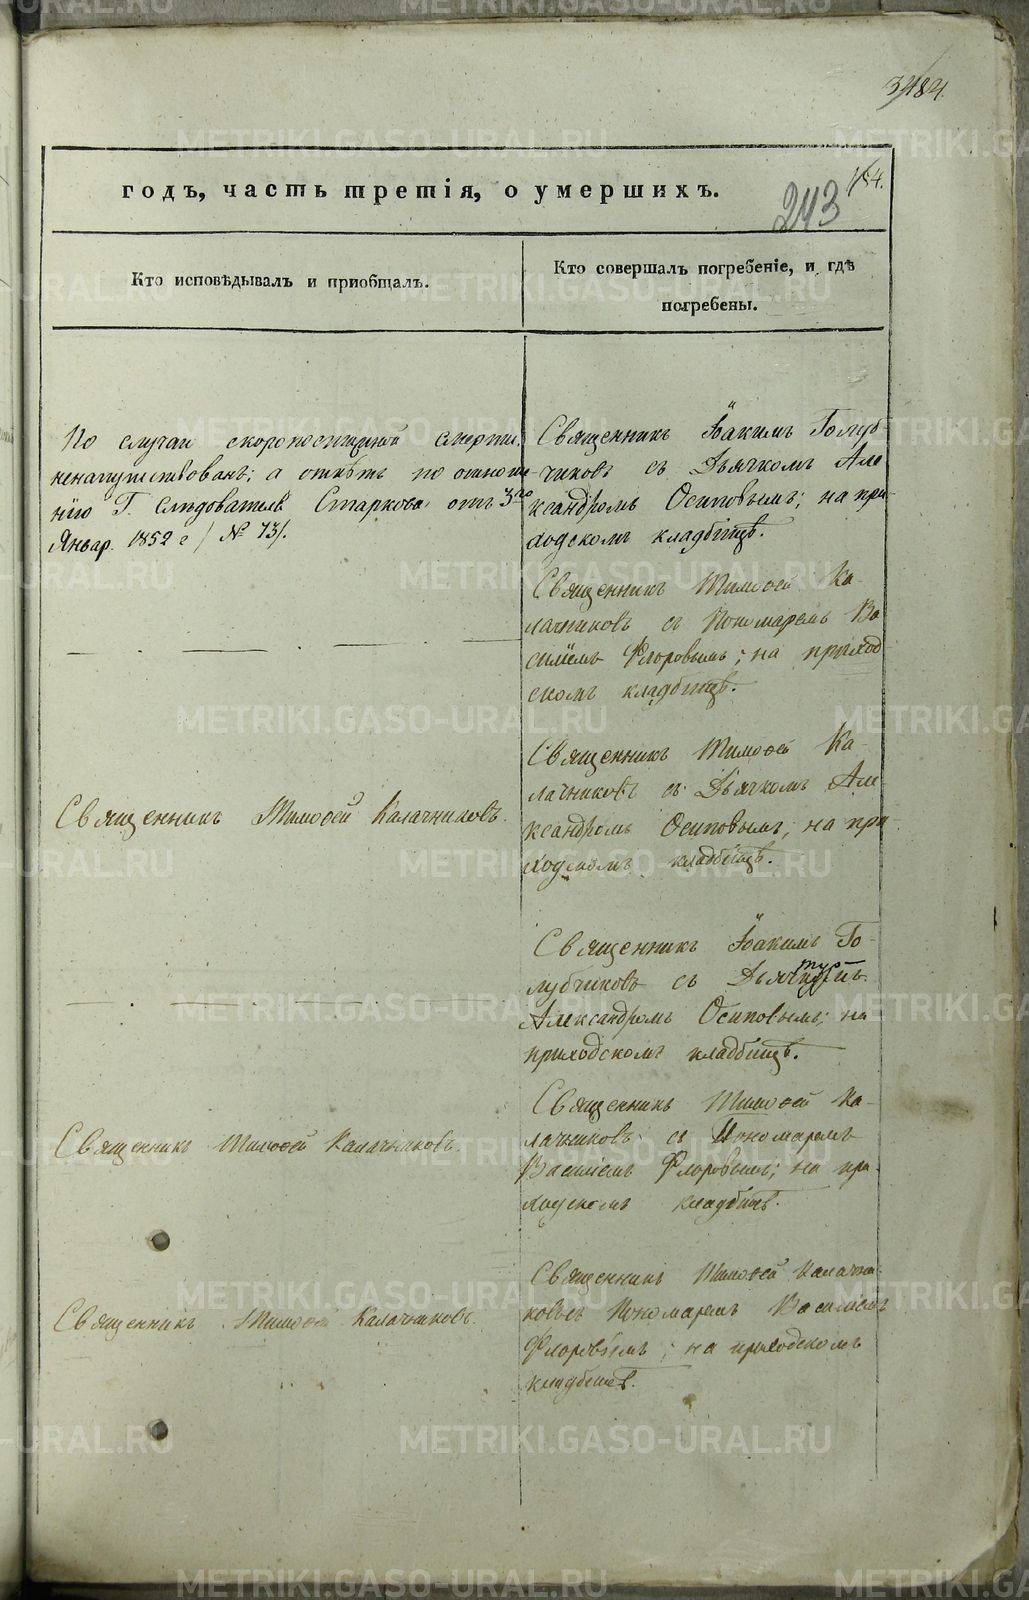 3484.
годъ, часть третія, о умершихъ.
243
154.
Кто исповѣдывалъ и пріобщалъ.
Кто совершалъ погребеніе, и гдѣ
погребены.
По случаи скоропостижной смерти
ненапутствованъ; а отпѣтъ по отноше-
нію Г. Слѣдователя Старкова отъ 3го
Январ. 1852 г. / № 73/.
Священникъ Іоакимъ Голуб-
чиковъ съ Дьячкомъ Але-
ксандромъ Осиповымъ; на при-
ходскомъ кладбищѣ.
Священникъ Тимоѳей Ка-
лачниковъ съ Пономаремъ Ва-
силіемъ Флоровымъ; на приход-
скомъ кладбищѣ.
Священникъ Тимоѳей Калачниковъ.
Священникъ Тимоѳей Ка-
лачниковъ съ Дьячкомъ Але-
ксандромъ Осиповымъ; на при-
ходскомъ кладбищѣ.
Священникъ Іоакимъ Го-
лубчиковъ съ
Александромъ Осиповымъ; на
приходскомъ кладбищѣ.
Священникъ Тимоѳей Калачниковъ.
Священникъ Тимоѳей Ка-
лачниковъ съ Пономаремъ
Василіемъ Флоровымъ; на при-
ходскомъ кладбищѣ.
Священникъ Тимоѳей Калачниковъ.
Священникъ Тимоѳей Калачни-
ковъ съ Пономаремъ Василіемъ
Флоровымъ; на приходскомъ
кладбищѣ.
METRIKI.GASO-URAL.RU